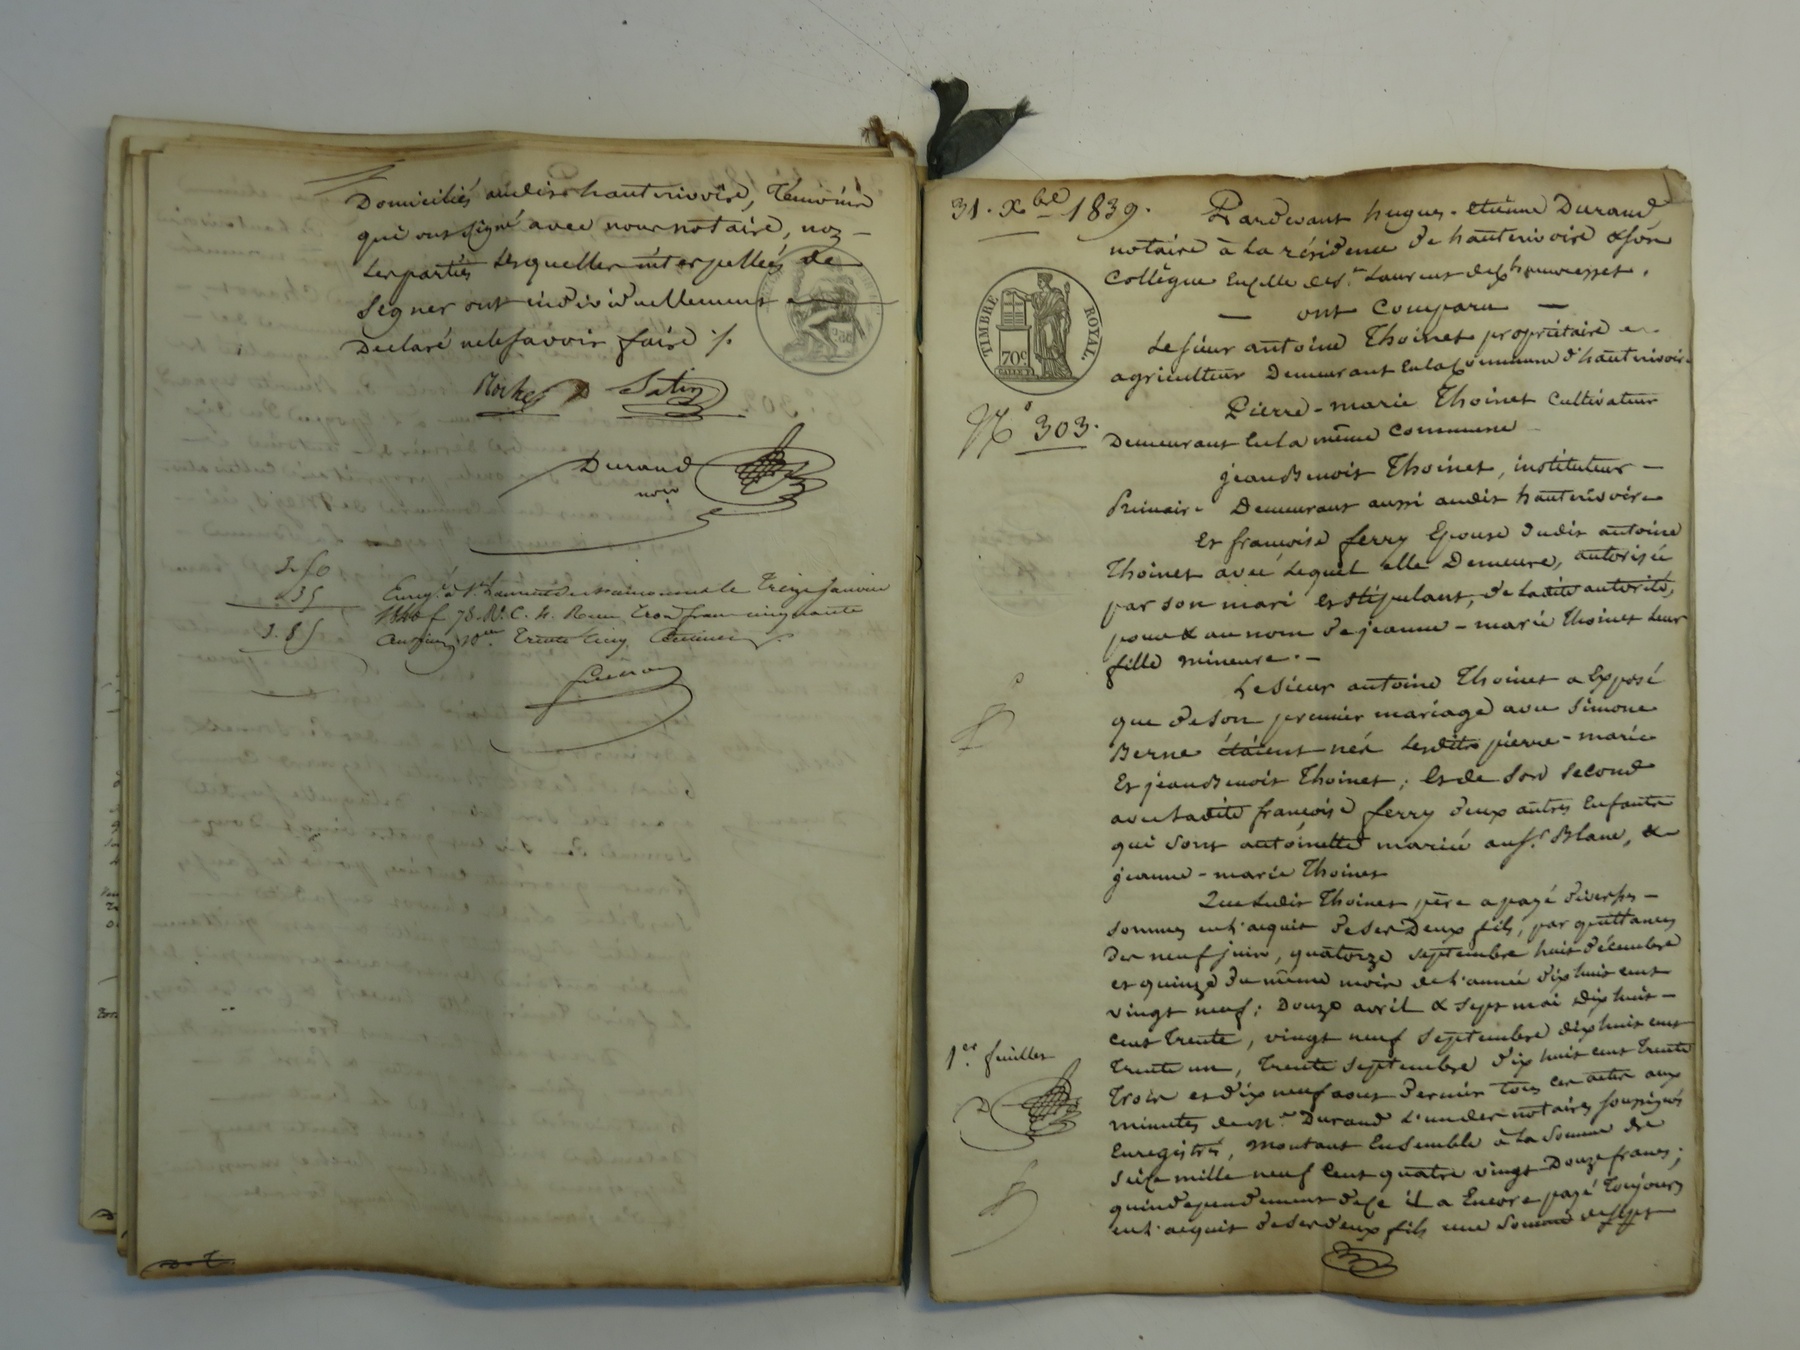 Domiciliés audit hauterivoire, Témoins
qui ont signé avec nous notaire, non
les parties lesquelles interpellées de
signer ont individuellement
Déclaré ne le savoir faire ./.
Durand
no.re
3.50
.35
3.85
Enreg. à St Laurent de Chamousset le Treize janvier
1840 f. 78. R.o C. 4. Reçu Trois francs cinquante
Centimes 10.me Trente Cinq Centimes
31. Xbre 1839.
Pardevant hugues-etienne Durand
notaire à la résidence de hauterivoire & son
Collègue en celle de St. Laurent de Chamousset.
— ont Comparu —
Le sieur antoine Thoinet propriétaire
agriculteur Demeurant en la Commune d'hauterivoire
TIMBRE ROYAL.
70c
N.o 303.
Pierre-marie Thoinet Cultivateur
Demeurant en la même Commune
jean Benoit Thoinet, instituteur —
Primaire Demeurant aussi audit hauterivoire
Et françoise ferry Epouse dudit antoine
Thoinet avec lequel elle Demeure, autorisée
par son mari et stipulant, de ladite autorité,
pour & au nom de jeanne-marie Thoinet leur
fille mineure. —
Le sieur antoine Thoinet a Exposé
que de son premier mariage avec Simone
Berne étaient nés lesdits pierre-marie
Et jean Benoit Thoinet; et de son second
avec ladite françoise ferry deux autres Enfants
qui sont antoinette mariée au Sr. Blanc, &
jeanne-marie Thoinet
Que ledit Thoinet père a payé diverses —
sommes en l'acquit de ses Deux fils, par quittances
Des neuf juin, quatorze septembre huit décembre
et quinze du même mois de l'année dix huit cent
vingt neuf; Douze avril & sept mai dix huit —
cent trente, vingt neuf septembre dix huit cent
trente un, trente septembre dix huit cent trente
Trois et dix neuf aout dernier tous ces actes aux
minutes de Me. Durand l'un des notaires soussignés
Enregistrés, montant Ensemble à la somme de
Seize mille neuf Cent quatre vingt Douze francs;
qu'indépendemment de ce il a Encore payé Toujours
en l'acquit de ses deux fils une somme de sept
1er. feuillet